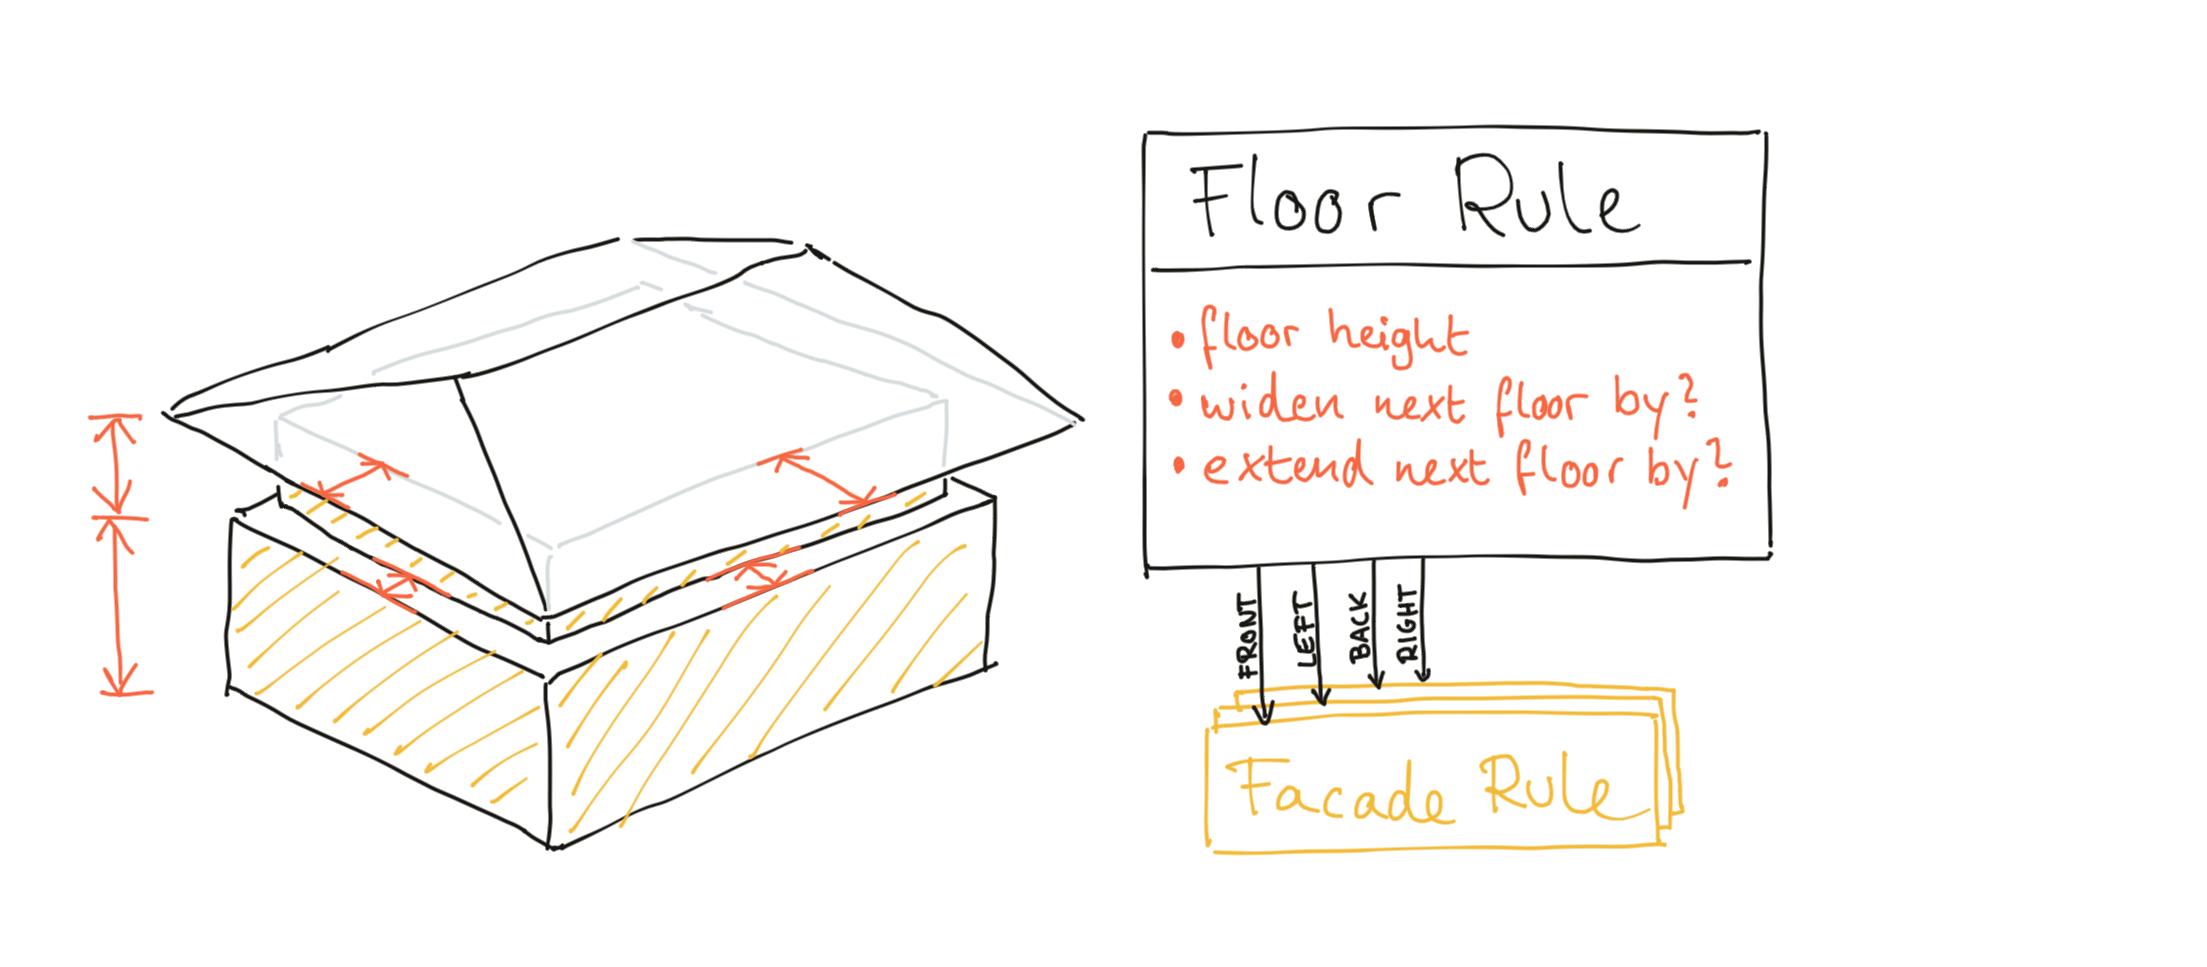 Floor Rule
• floor height
• widen next floor by?
• extend next floor by?
FRONT
LEFT
BACK
RIGHT
Facade Rule